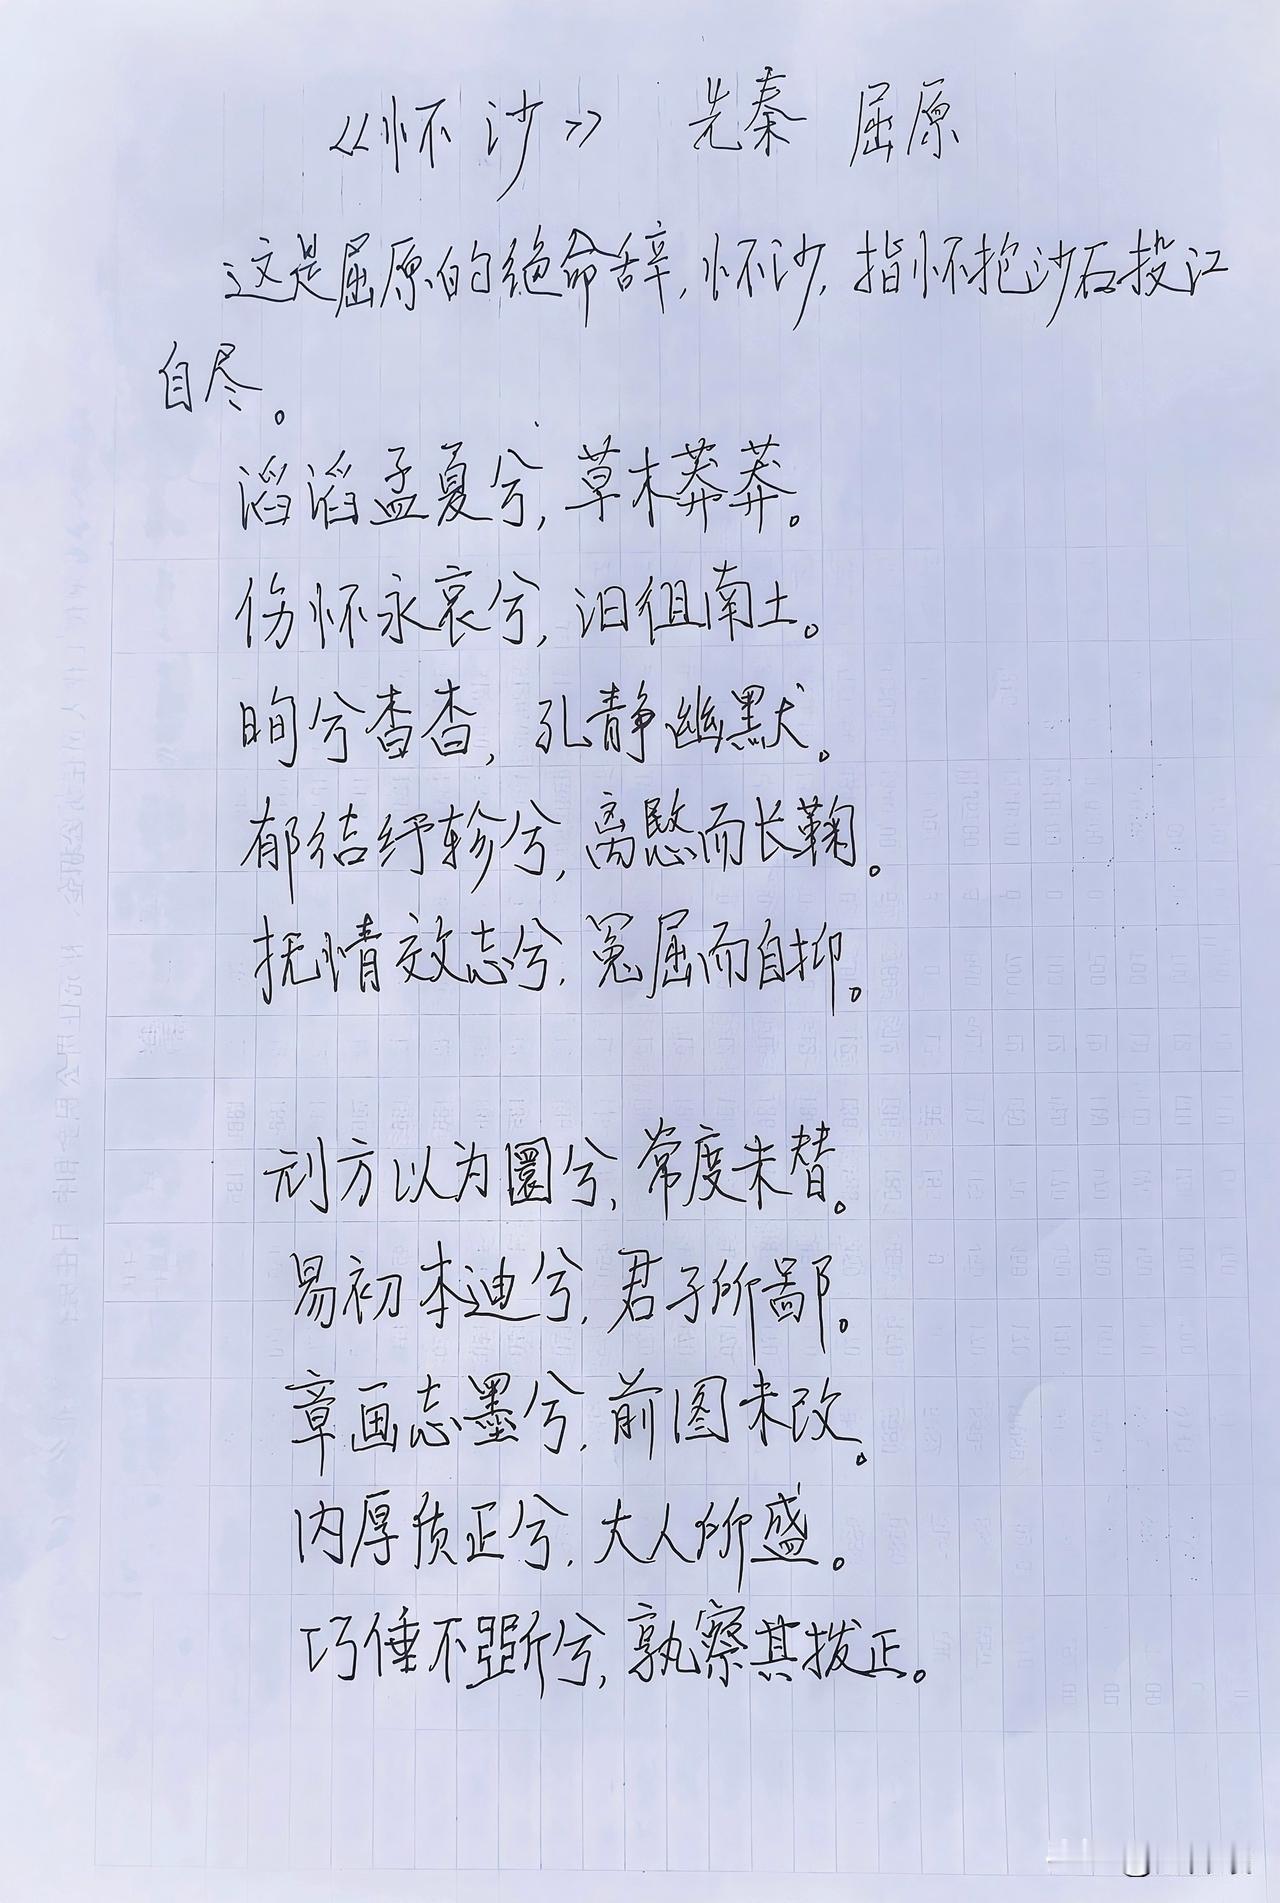 《怀沙》 先秦 屈原
这是屈原的绝命辞,怀沙,指怀抱沙石投江
自尽。
滔滔孟夏兮,草木莽莽。
伤怀永哀兮,汨徂南土。
眴兮杳杳,孔静幽默。
郁结纡轸兮,离慜而长鞠。
抚情效志兮,冤屈而自抑。
刓方以为圜兮,常度未替。
易初本迪兮,君子所鄙。
章画志墨兮,前图未改。
内厚质正兮,大人所盛。
巧倕不斲兮,孰察其拨正。